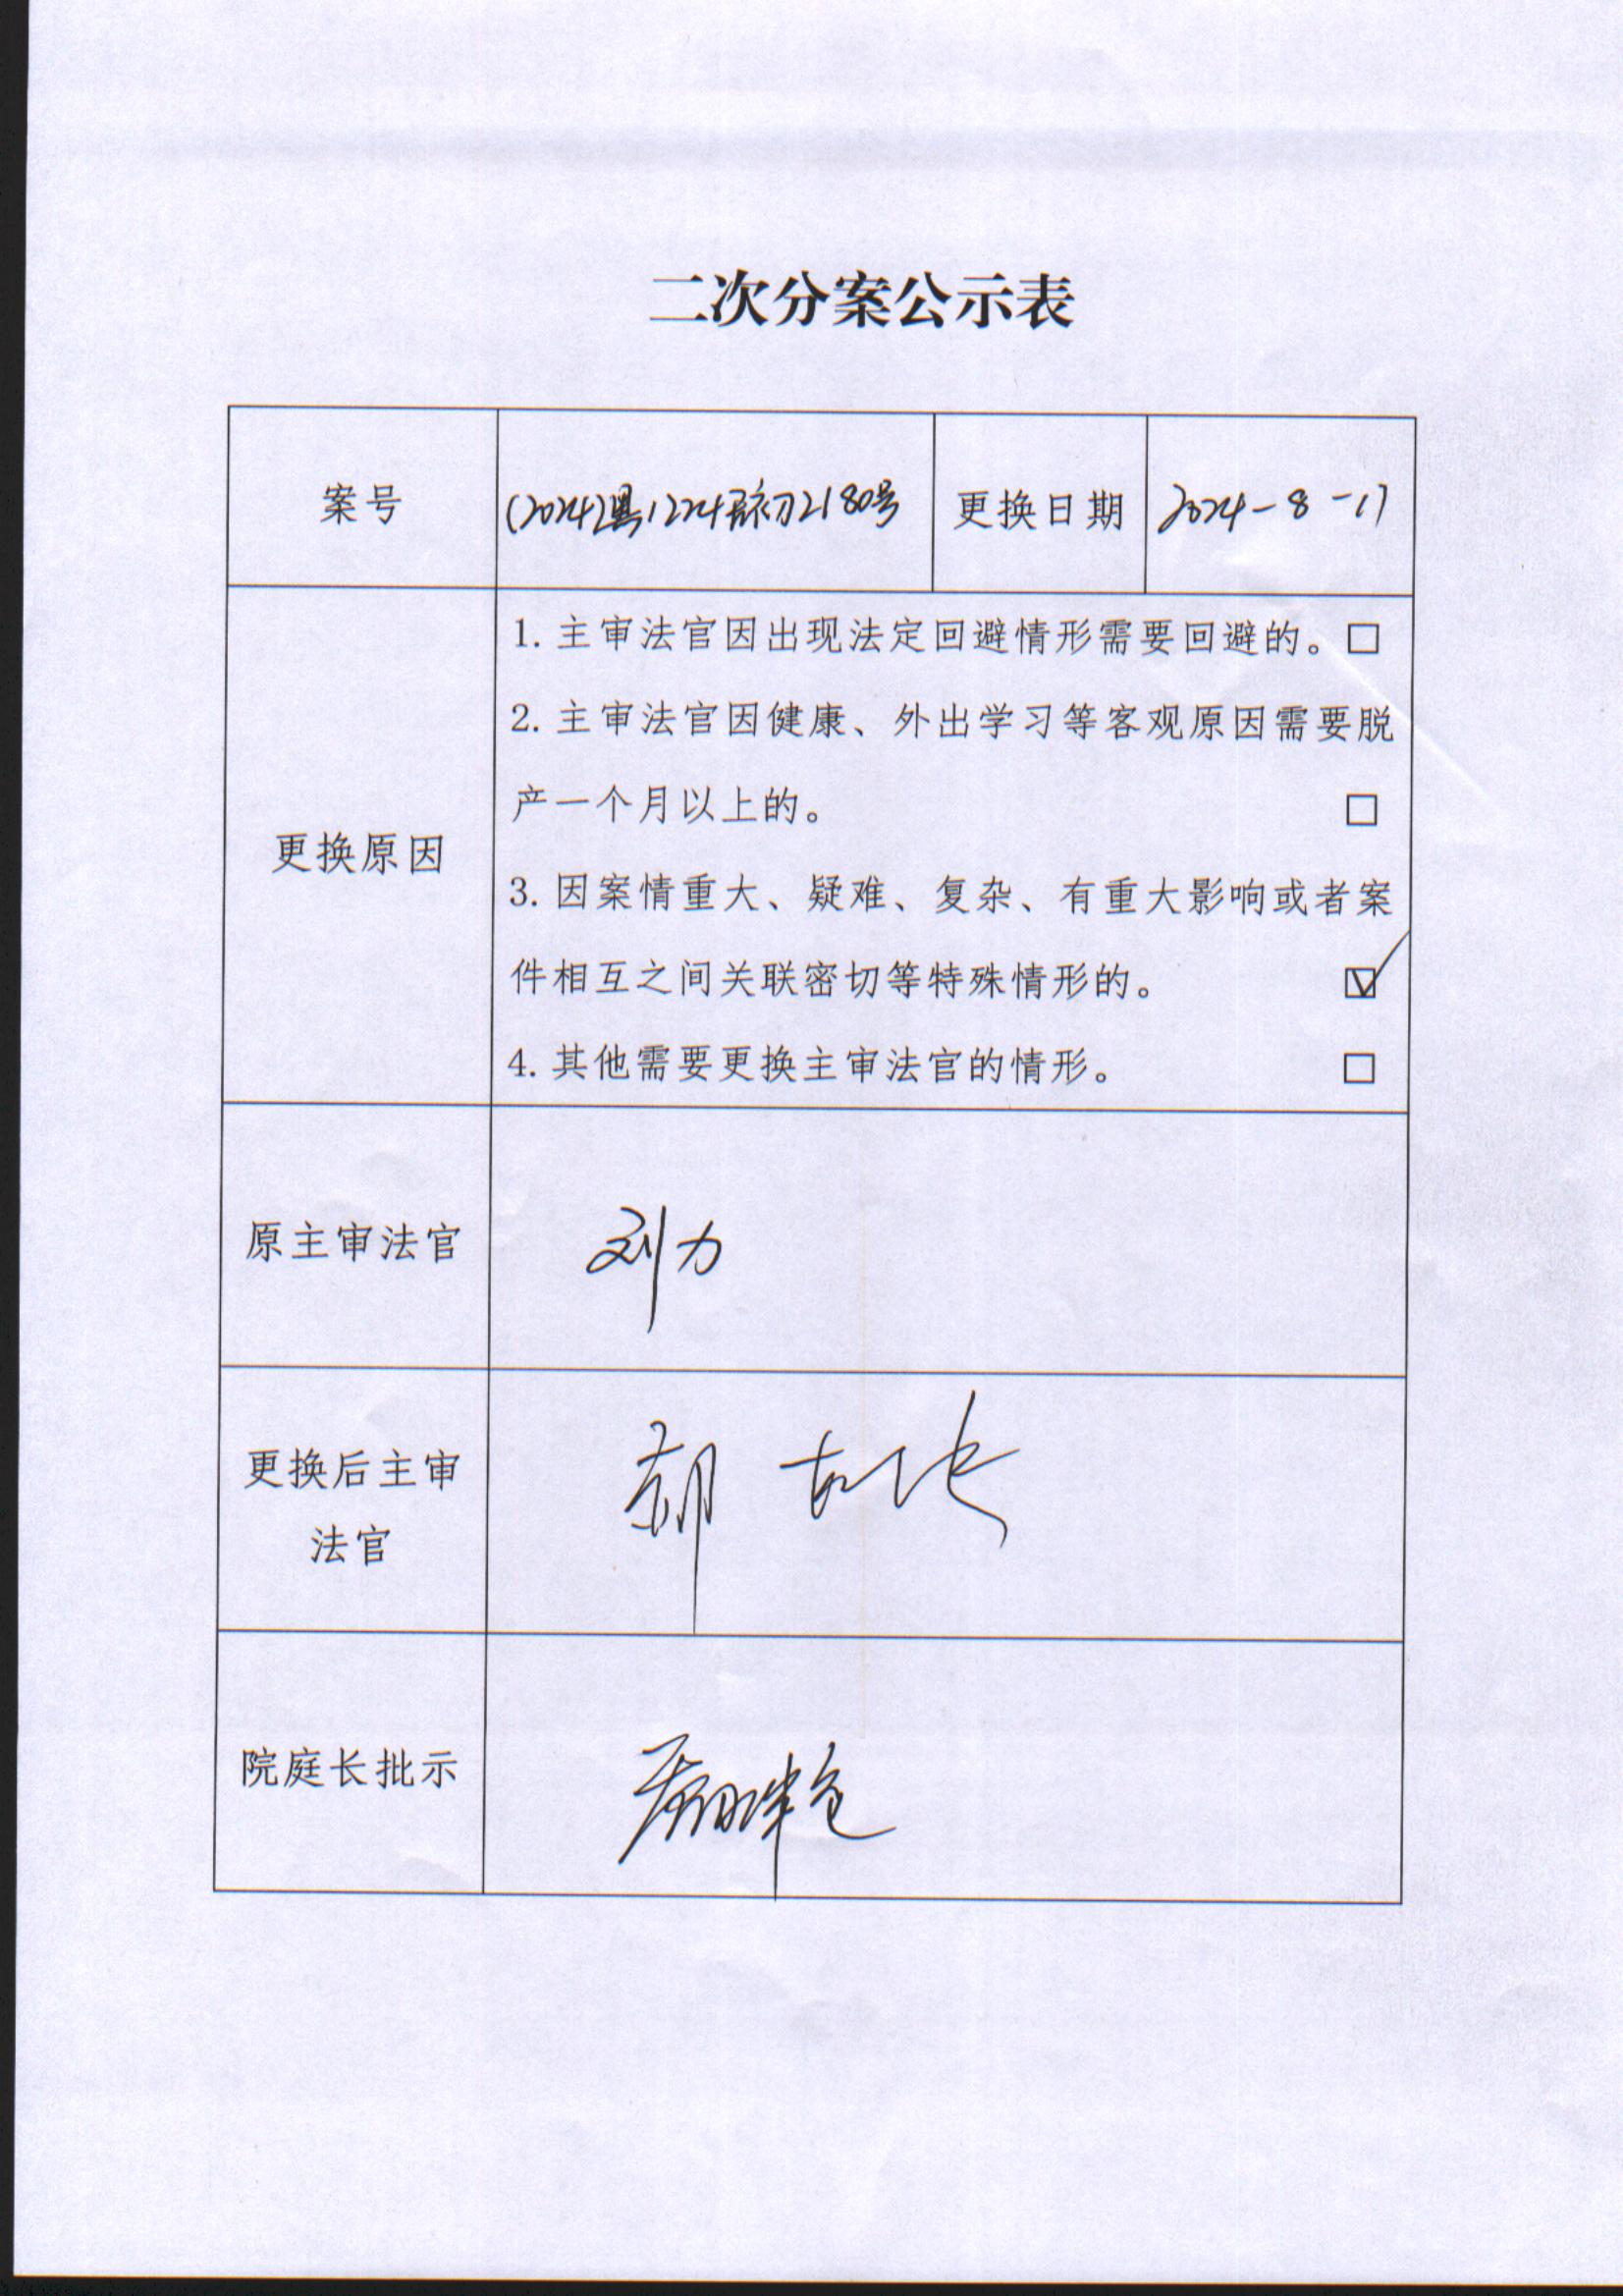 二次分案公示表
案号 (2024)黑1224民初2180号 更换日期 2024-8-17
更换原因
1. 主审法官因出现法定回避情形需要回避的。□
2. 主审法官因健康、外出学习等客观原因需要脱
产一个月以上的。 □
3. 因案情重大、疑难、复杂、有重大影响或者案
件相互之间关联密切等特殊情形的。 ☑
4. 其他需要更换主审法官的情形。 □
原主审法官 刘力
更换后主审
法官
院庭长批示